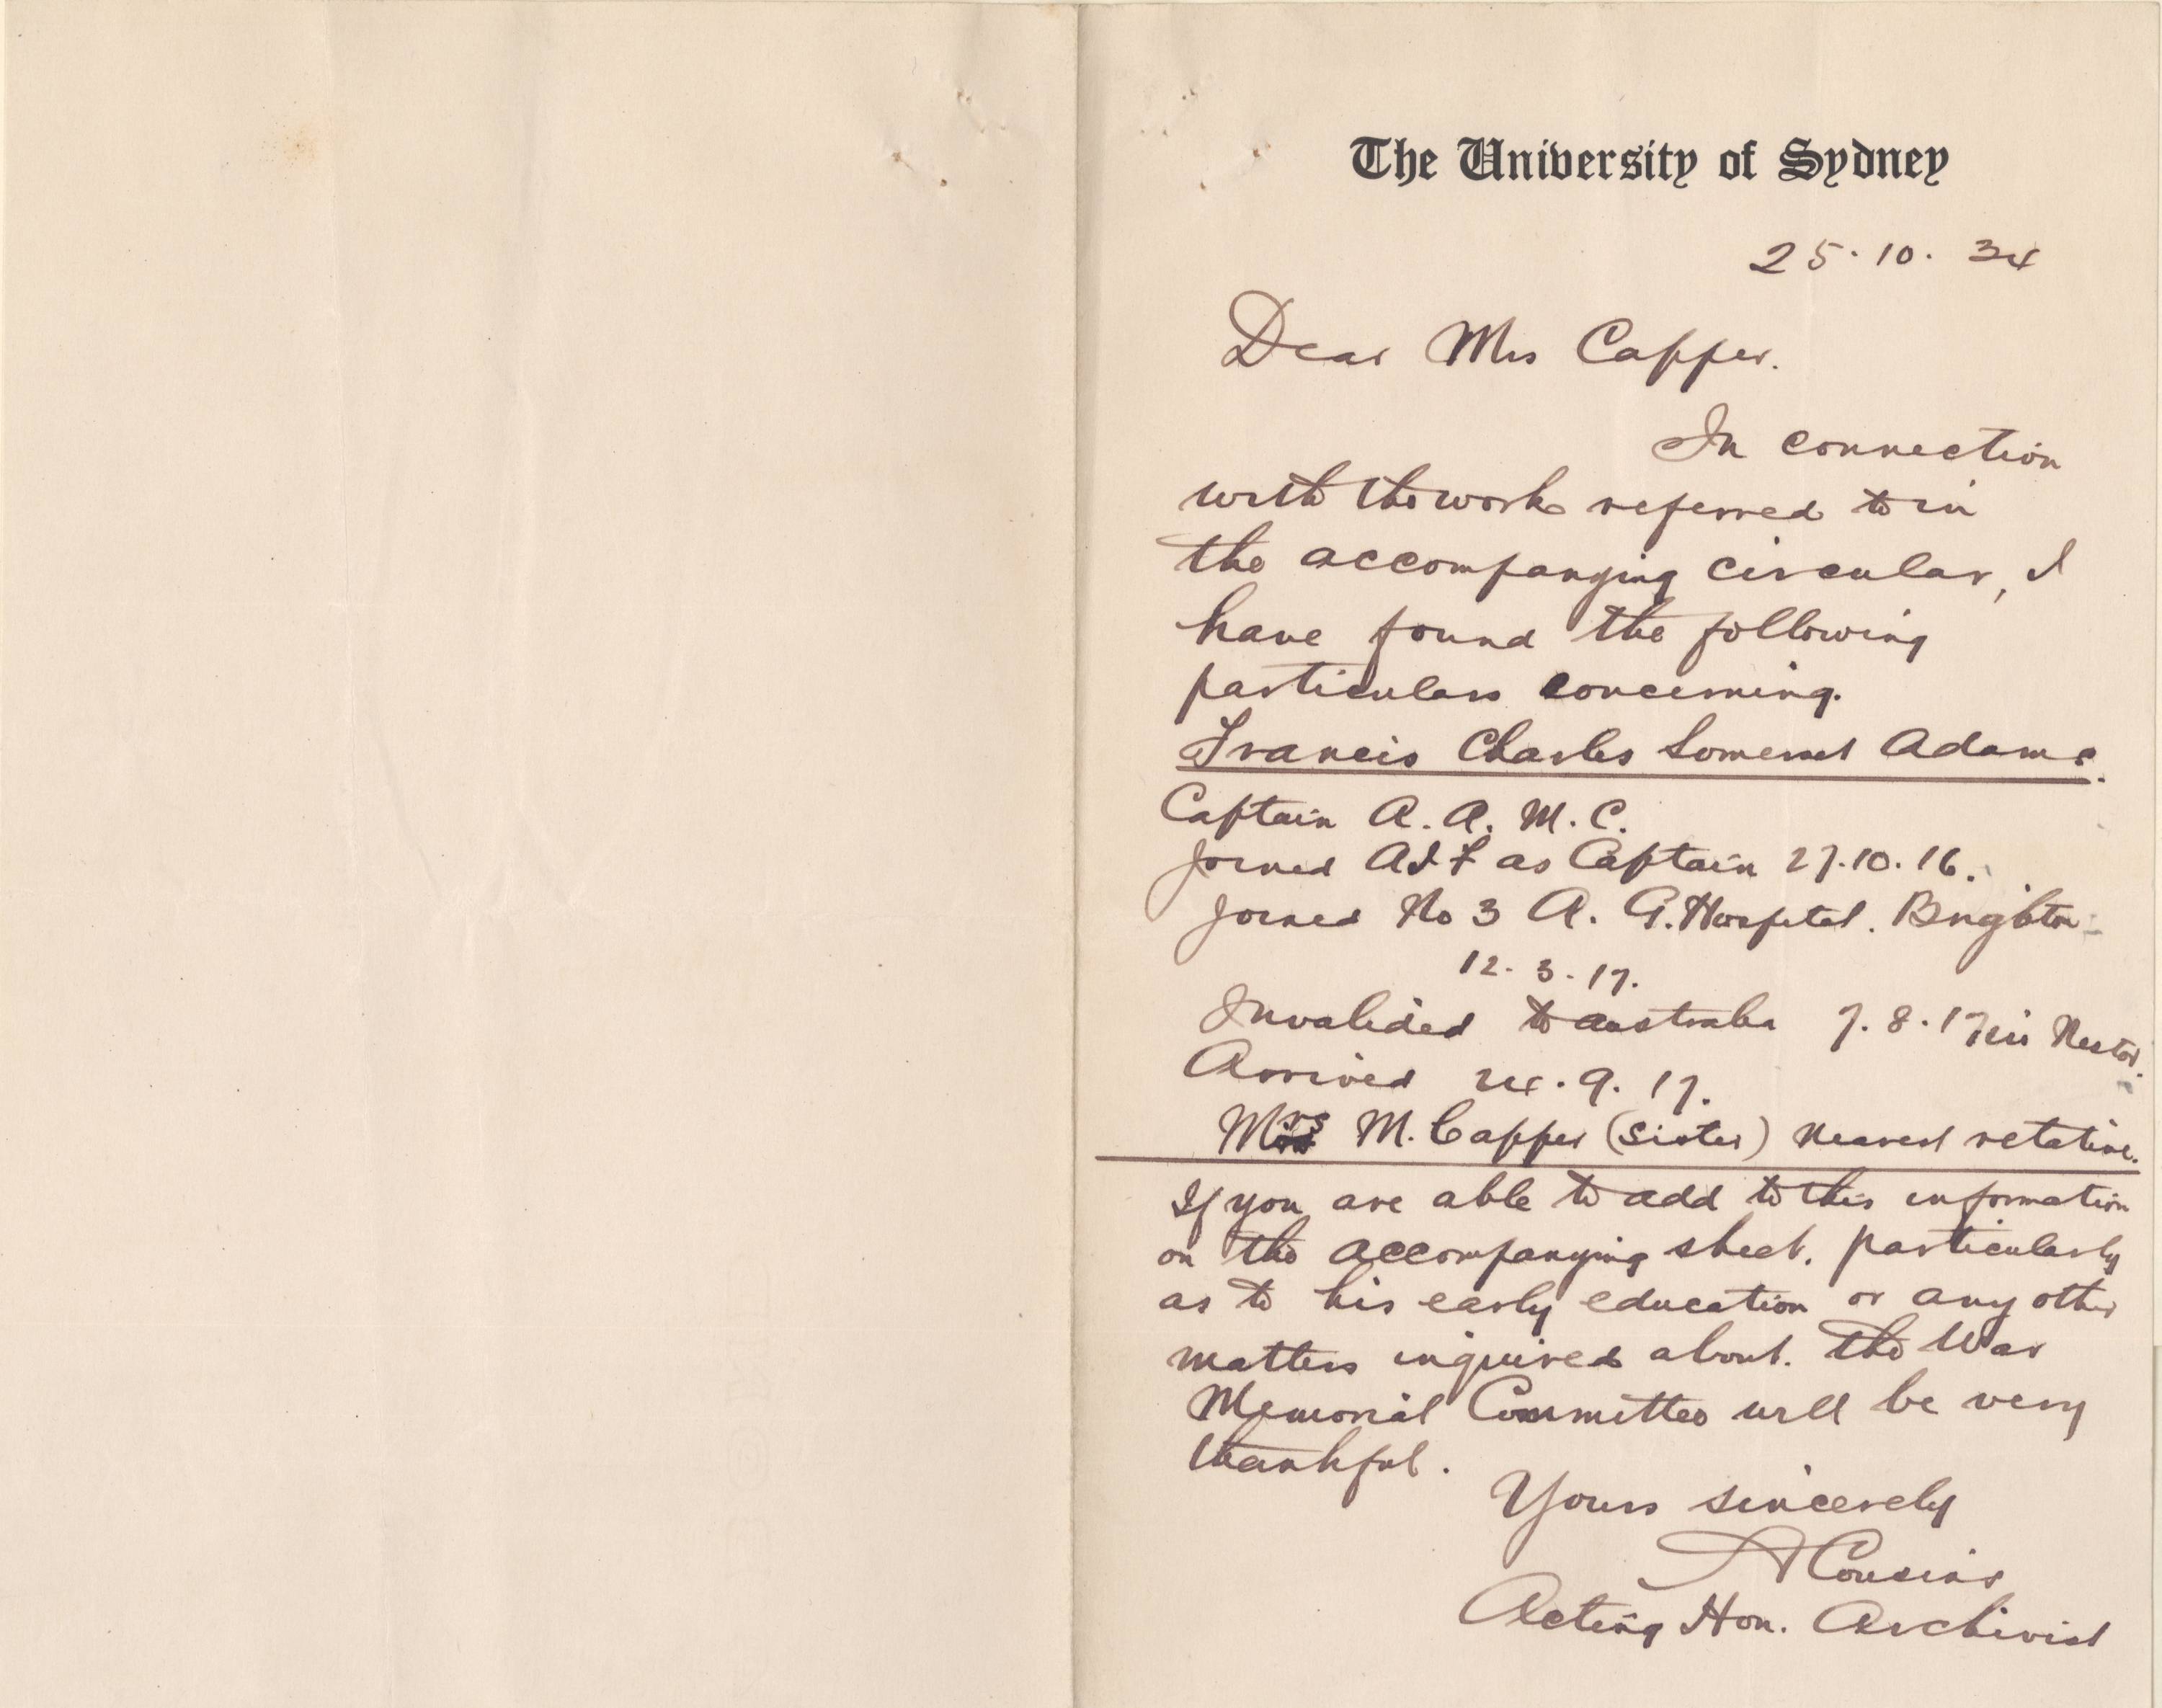 The University of Sydney
25.10.34
Dear Mrs Capper.
In connection
with the work referred to in
the accompanying circular, I
have found the following
particulars concerning.
Francis Charles Somerset Adams.
Captain A.A.M.C.
Joined AIF as Captain 27.10.16.
Joined No 3 A.G.Hospital. Brighton
12.3.17.
Invalided to Australia 7.8.17 in Nestor.
Arrived 24.9.17.
Mrs M. Capper (sister) nearest relative.
If you are able to add to this information
on the accompanying sheet, particularly
as to his early education or any other
matters inquired about. The War
Memorial Committee will be very
thankful.
Yours sincerely
A Cousins
Acting Hon. Archivist